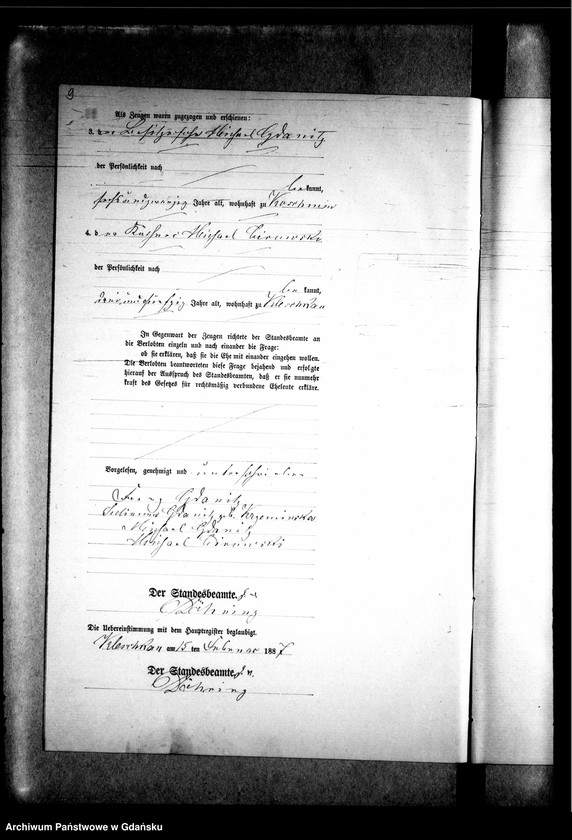 9
Als Zeugen waren zugezogen und erschienen:
3. der Besitzersohn Michael Gdanitz
der Persönlichkeit nach
bekannt,
sechsundzwanzig Jahre alt, wohnhaft zu
4. der Käthner Michael
der Persönlichkeit nach
bekannt,
Jahre alt, wohnhaft zu Kleschkau
In Gegenwart der Zeugen richtete der Standesbeamte an
die Verlobten einzeln und nach einander die Frage:
ob sie erklären, daß sie die Ehe mit einander eingehen wollen.
Die Verlobten beantworteten diese Frage bejahend und erfolgte
hierauf der Ausspruch des Standesbeamten, daß er sie nunmehr
kraft des Gesetzes für rechtsmäßig verbundene Eheleute erkläre.
Vorgelesen, genehmigt und unterschrieben
Franz Gdanitz
Gdanitz geb. Krzeminska
Michael Gdanitz
Michael
Der Standesbeamte.
Döhring
Die Uebereinstimmung mit dem Hauptregister beglaubigt.
Kleschkau am 15 ten Februar 1887
Der Standesbeamte.
Döhring
Archiwum Państwowe w Gdańsku